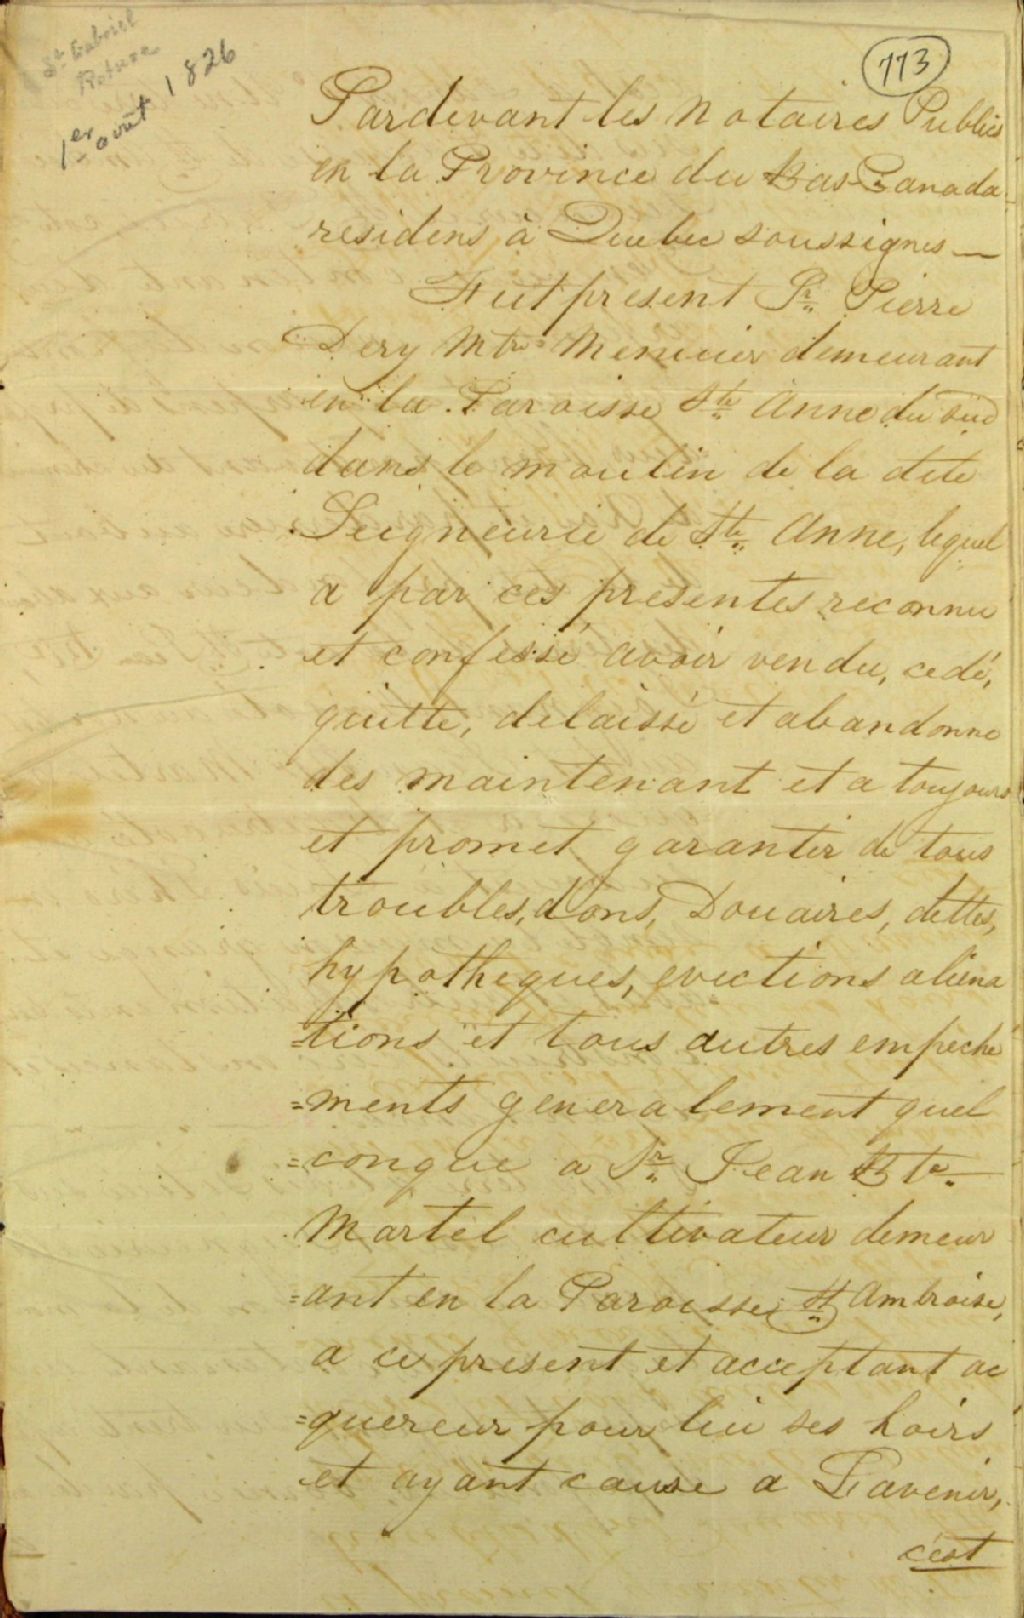 St Gabriel
Retrace
1er août 1826
113
Pardevant les Notaires Publics
en la Province du Bas-Canada
residens à Quebec soussignes —
Fut present Sr. Pierre
Dery Mtre Menuier demeurant
en la Paroisse Ste Anne du Sud
dans le moulin de la dite
Seigneurie de Ste Anne, lequel
a par ces presentes reconnu
et confessé avoir vendu, cedé,
quitte, delaissé et abandonne
des maintenant et a toujours
et promet garantir de tous
troubles, dons, Douaires, dettes,
hypotheques, evictions aliena
=tions et tous autres empeche
=ments generalement quel
=conque a Sr. Jean Bte.
Martel cultivateur demeur
=ant en la Paroisse St Ambroise,
a ce present et acceptant ac
=quereur pour lui ses hoirs
et ayant cause a L'avenir,
c'est